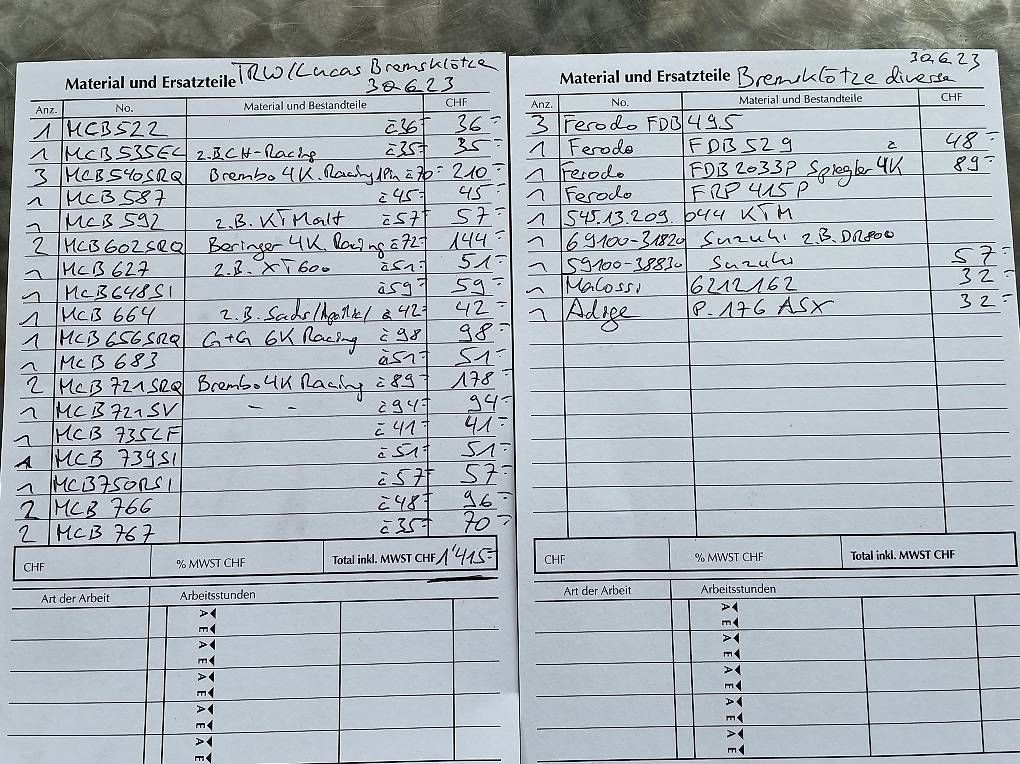 Material und Ersatzteile TRW/Lucas Bremsklötze
30.6.23
Anz. No. Material und Bestandteile CHF
1 MCB522 à 36.- 36.-
1 MCB535EC z.B CH-Racing à 35.- 35.-
3 MCB540SRQ Brembo 4K. Racing 1Pin à 70.- 210.-
1 MCB 587 à 45.- 45.-
1 MCB 592 z.B. KTM alt à 57.- 57.-
2 MCB 602SRQ Beringer 4K. Racing à 72.- 144.-
1 MCB 627 z.B. XT600 à 51.- 51.-
1 MCB 648SI à 59.- 59.-
1 MCB 664 z.B. Sachs/ à 42.- 42.-
1 MCB 656SRQ G+G 6K Racing à 98 98.-
1 MCB 683 à 51.- 51.-
2 MCB 721SRQ Brembo 4K Racing à 89.- 178.-
1 MCB 721SV - - à 94.- 94.-
1 MCB 735LF à 41.- 41.-
1 MCB 739SI à 51.- 51.-
1 MCB750RSI à 57.- 57.-
2 MCB 766 à 48.- 96.-
2 MCB 767 à 35.- 70.-
CHF % MWST CHF Total inkl. MWST CHF 1'415.-
Art der Arbeit Arbeitsstunden
A
E
A
E
A
E
A
E
A
E
30.6.23
Material und Ersatzteile Bremsklötze diverse
Anz. No. Material und Bestandteile CHF
3 Ferodo FDB 495
1 Ferodo FDB 529 à 48.-
1 Ferodo FDB 2033P Spiegler 4K 89.-
1 Ferodo FRP 415P
1 545.13.209.044 KTM
1 69100-31820 Suzuki z.B. DR800
1 59100-38830 Suzuki 57.-
1 Malossi 6212162 32.-
1 Adige P.176 ASX 32.-
CHF % MWST CHF Total inkl. MWST CHF
Art der Arbeit Arbeitsstunden
A
E
A
E
A
E
A
E
A
E